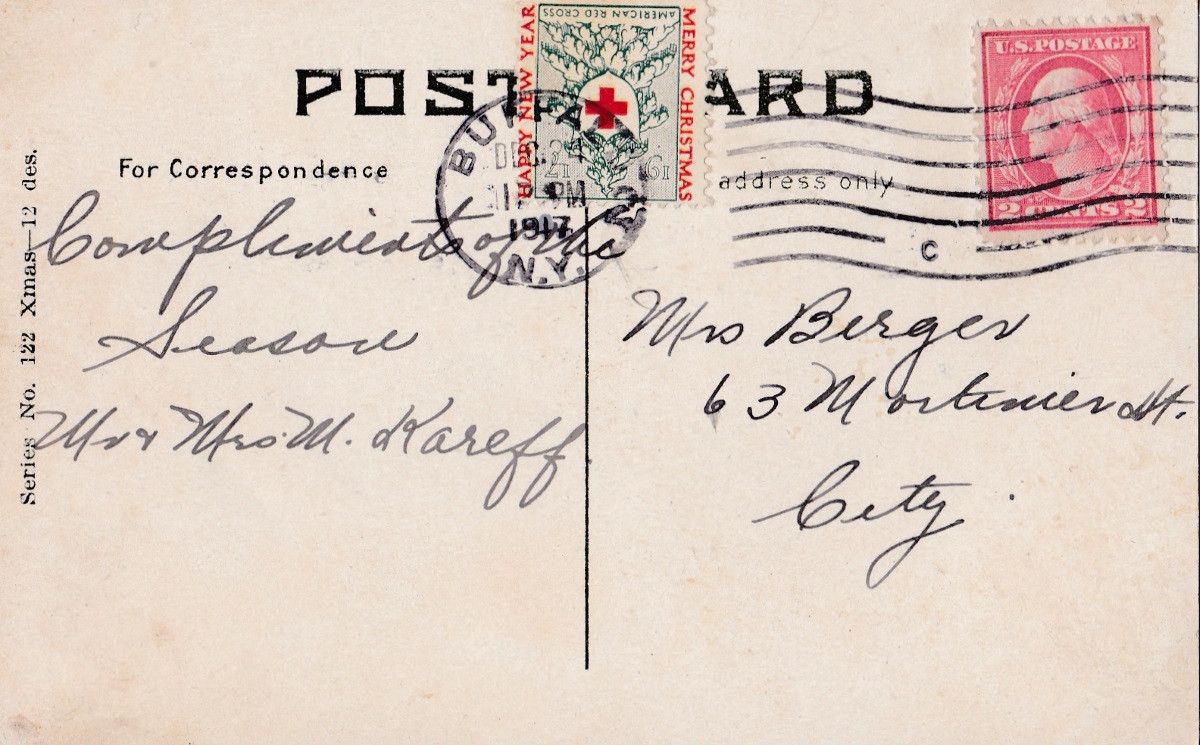 AMERICAN RED CROSS
HAPPY NEW YEAR
MERRY CHRISTMAS
19 17
POST CARD
U.S. POSTAGE
2 CENTS 2
BUFFALO
DEC 24
PM
1917
N.Y.
C
For Correspondence
address only
Series No. 122 Xmas—12 des.
Compliments of the
Season
Mr & Mrs. M. Kareff
Mrs Berger
63 Mortimer St.
City